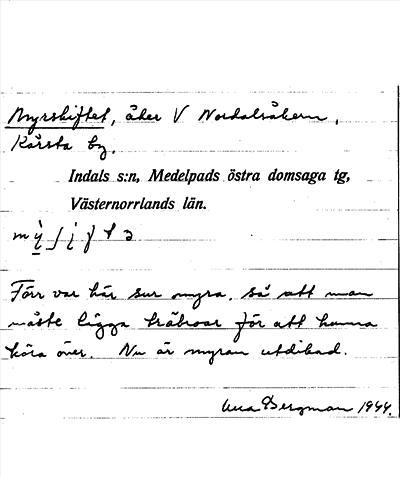 Myrskiftet, åker V Nordalsåkern,
Kårsta by.
Indals s:n, Medelpads östra domsaga tg,
Västernorrlands län.
Förr var här sur myra, så att man
måste ligga kråkroar för att kunna
köra över. Nu är myran utdikad.
Gergman 1944.